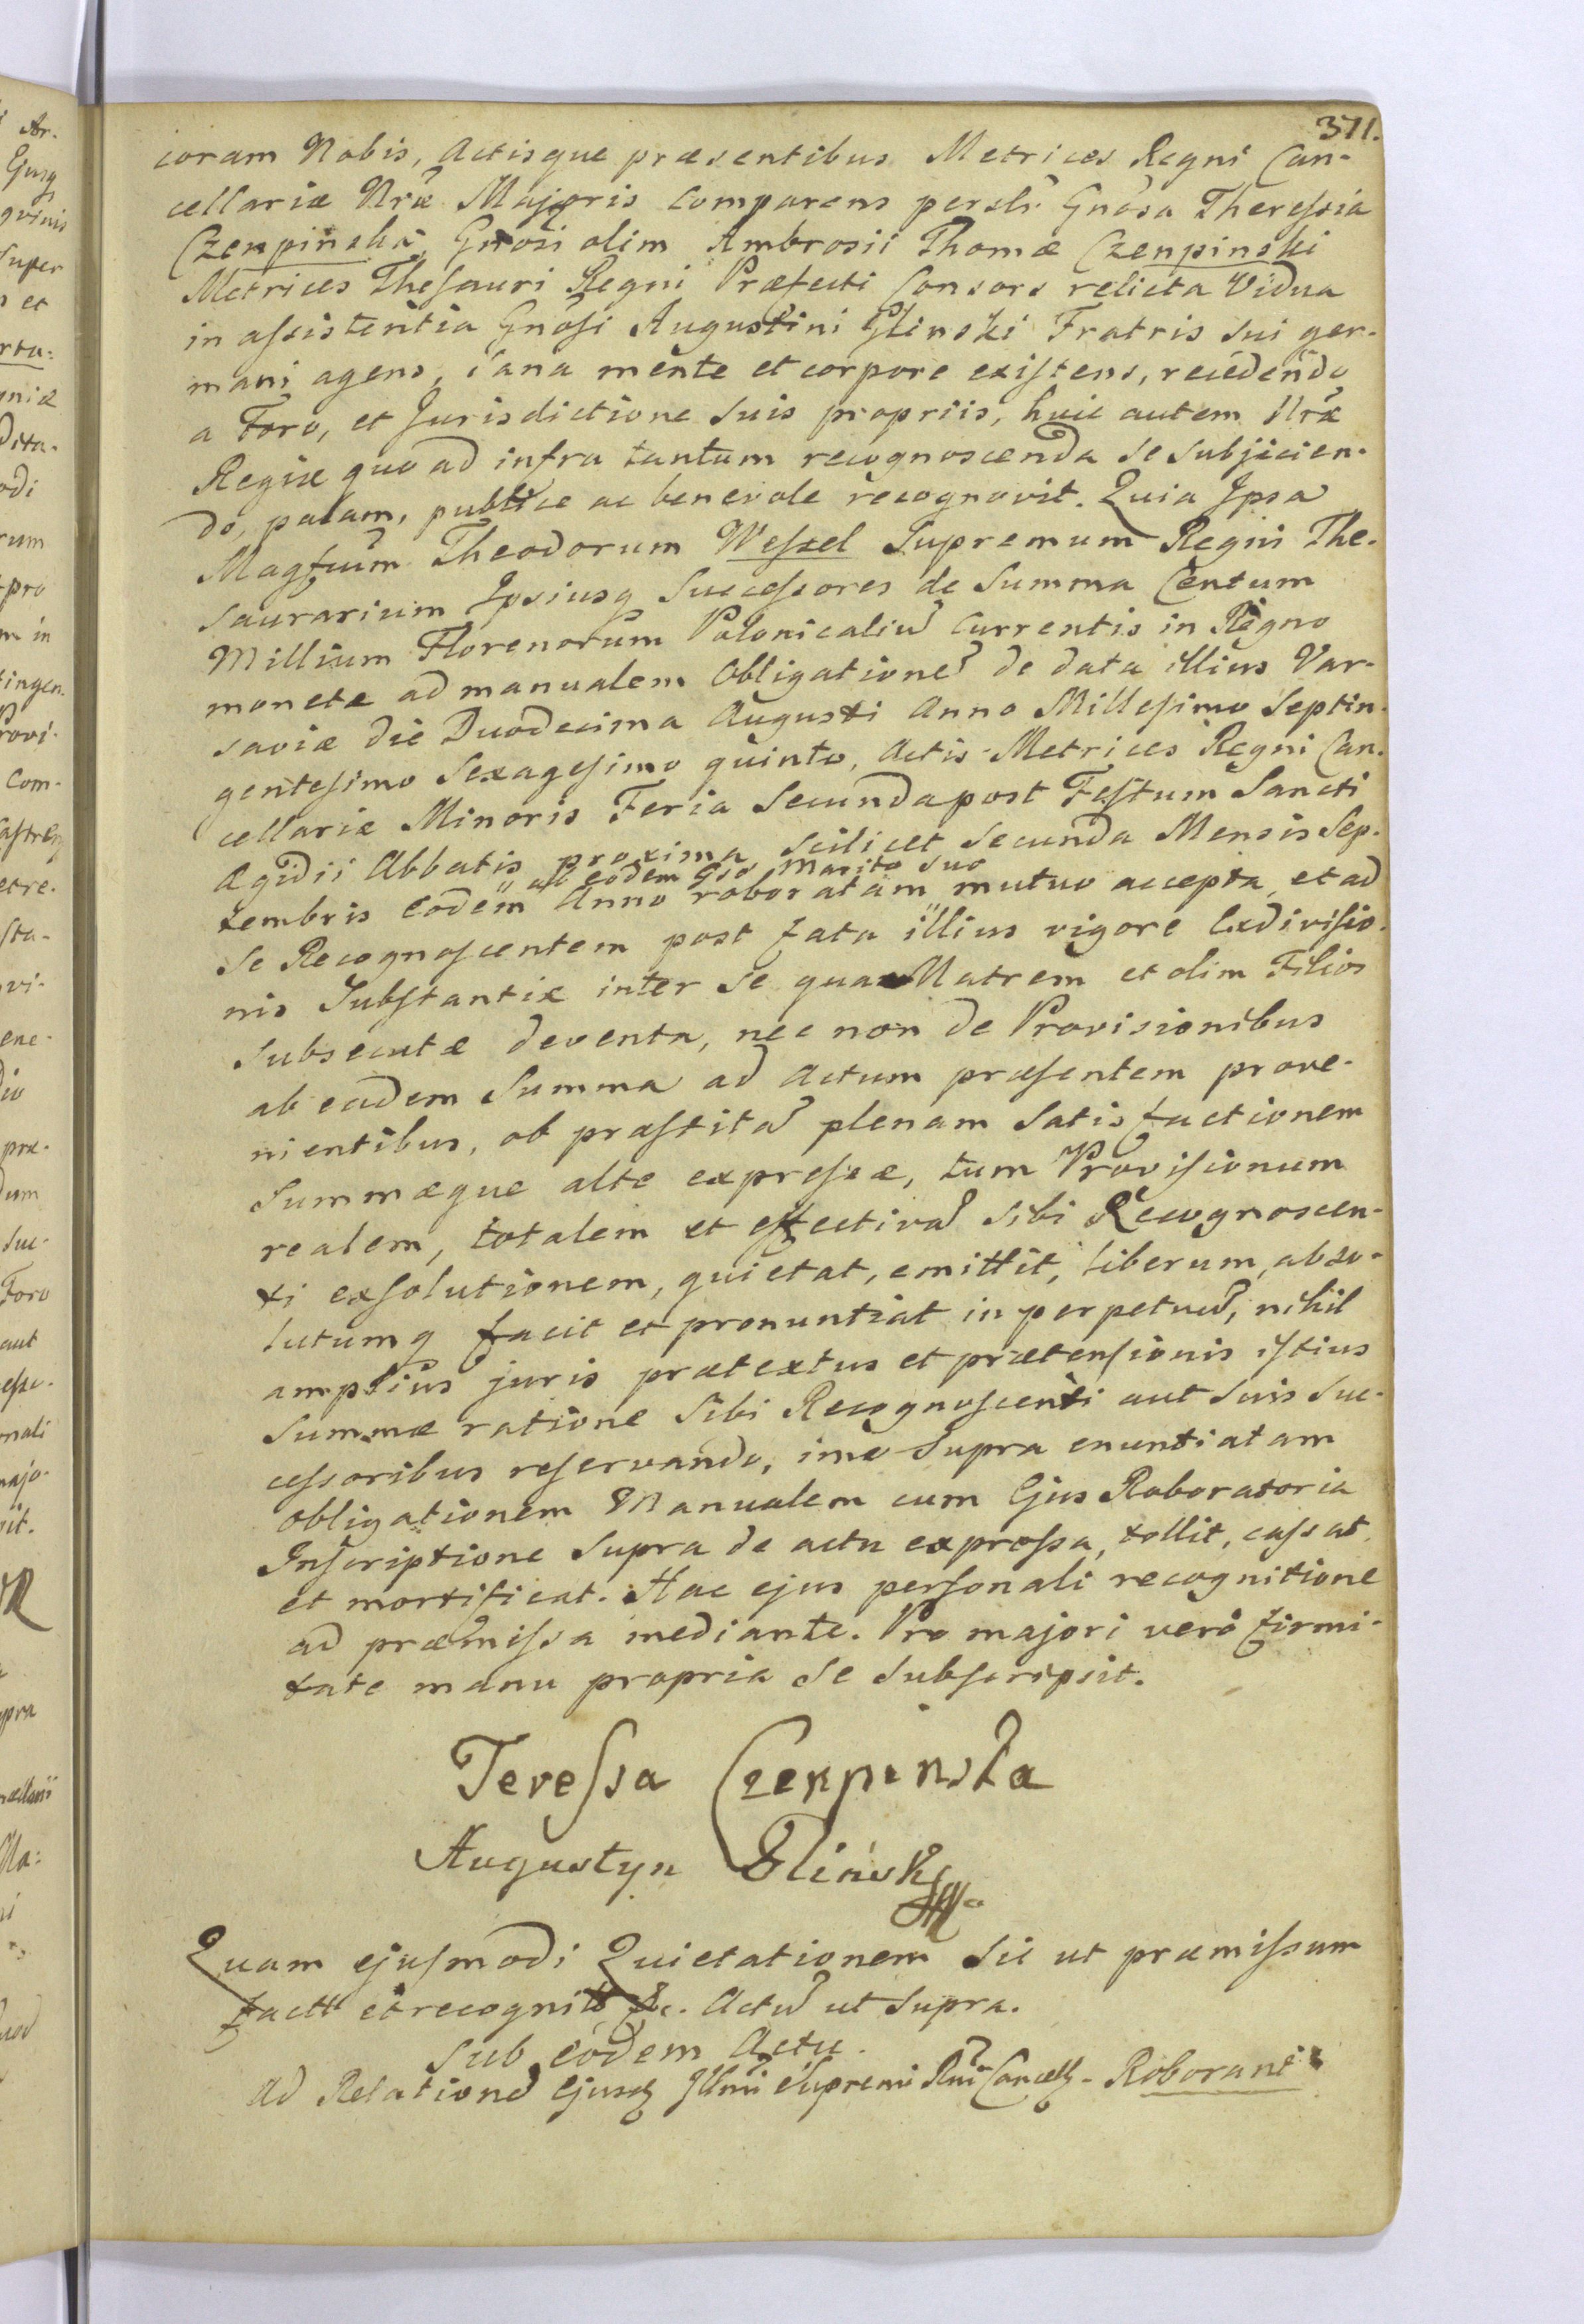 371.
coram Nobis, Actisque præsentibus Metrices Regni Can-
cellariæ Nræ Majoris comparens perslr Gnosa Theressia
Czenpinska, Gnosi olim Ambrosii Thomæ Czenpinski
Metrices Thesauri Regni Præfecti Consors relicta Vidua
in assistentia Gnosi Augustini Glinski Fratris sui ger-
mani agens, sana mente et corpore existens, recedendo
a Foro, et Jurisdictione suis propriis, huic autem Nræ
Regiæ quo ad infra tantum recognoscenda se subjicien-
do, palam, publice ac benevole recognovit. Quia Ipsa
Magfcum Theodorum Wessel Supremum Regni The-
saurarium Ipsiusq Successores de Summa Centum
Millium Florenorum Polonicaliu Currentis in Regno
monetæ ad manualem Obligatione de data illius Var-
saviæ die Duodecima Augusti Anno Millesimo Septin-
gentesimo Sexagesimo quinto, Actis Metrices Regni Can-
cellariæ Minoris Feria Secunda post Festum Sancti
Ægidii Abbatis proxima, scilicet secunda Mensis Sep-
ab eodem Gso Marito suo
tembris eodem Anno roboratam mutuo accepta, et ad
se Recognoscentem post fata illius vigore Exdivisio-
nis Substantiæ inter se qua Matrem et olim Filios
subsecutæ deventa, nec non de Provisionibus
ab eadem Summa ad Actum præsentem prove-
nientibus, ob præstita plenam satisfactionem
Summæque alte expressæ, tum Provisionum
realem, totalem et effectiva sibi Recognoscen-
ti exsolutionem, quietat, emittit, liberum, abso-
lutumq facit et pronuntiat in perpetuu, nihil
amplius juris prætextus et prætensionis istius
Summæ ratione sibi Recognoscenti aut suis suc-
cessoribus reservando, imo supra enuntiatam
obligationem Manualem cum Ejus Roboratoria
Inscriptione supra de actu expressa, tollit, cassat
et mortificat. Hac ejus personali recognitione
ad præmissa mediante. Pro majori vero firmi-
tate manu propria se subscripsit.
Teressa Czenpinska
Augustyn Glinski
Quam ejusmodi Quietationem sic ut præmissum
factt et recognitt &c. Actu ut supra.
Sub eodem Actu.
Ad Relatione Ejusd Illmi Supremi Rni Cancell - Roborans